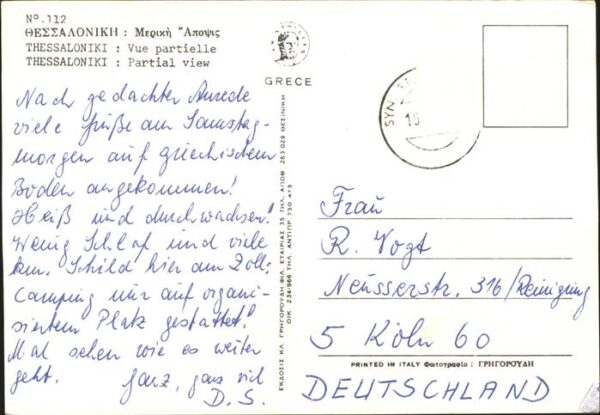 Nº.112
ΘΕΣΣΑΛΟΝΙΚΗ : Μερική Ἄποψις
THESSALONIKI : Vue partielle
THESSALONIKI : Partial view
GRECE
Nach gedachter Anrede
viele Grüße am Samstag-
morgen auf griechischem
Boden angekommen!
Heiß und durchwachsen!
Wenig Schlaf und viele
km. Schild hier am Zoll:
Camping nur auf organi-
siertem Platz gestattet!
Mal sehen wie es weiter
geht. Ganz, ganz viel
D.S.
ΕΚΔΟΣΙΣ ΚΛ. ΓΡΗΓΟΡΟΥΔΗ ΦΙΛ. ΕΤΑΙΡΙΑΣ 35 ΤΗΛ. ΑΠΟΘ 263.029 ΘΕΣ/ΝΙΚΗ
ΟΙΚ 234.966 ΤΗΛ. ΑΝΤΙΠΡ. 730.473
SYN
Frau
R. Vogt
Neusserstr. 316/Reinigung
5 Köln 60
PRINTED IN ITALY Φωτογραφία : ΓΡΗΓΟΡΟΥΔΗ
DEUTSCHLAND